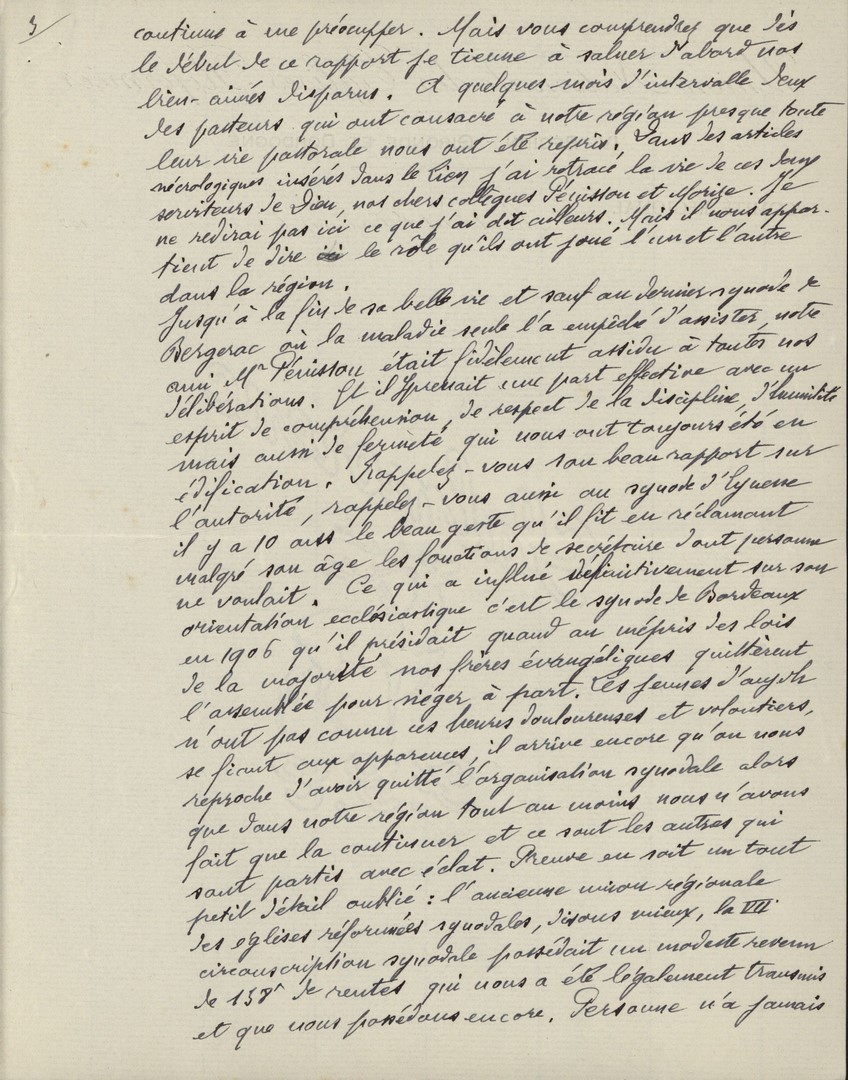 3/
continus à me préoccuper. Mais vous comprendrez que dès
le début de ce rapport je tienne à saluer d'abord nos
bien-aimés disparus. A quelques mois d'intervalle deux
des pasteurs qui ont consacré à notre région presque toute
leur vie pastorale nous ont été repris. Dans les articles
nécrologiques insérés dans le Lien j'ai retracé la vie de ces deux
serviteurs de Dieu, nos chers collègues Pénisson et Morize. Je
ne redirai pas ici ce que j'ai dit ailleurs. Mais il nous appar-
tient de dire le rôle qu'ils ont joué l'un et l'autre
dans la région.
Jusqu'à la fin de sa belle vie et sauf au dernier synode de
Bergerac où la maladie seule l'a empêché d'assister, notre
ami Mr Pénisson était fidèlement assidu à toutes nos
délibérations. Et il y prenait une part effective avec un
esprit de compréhension, de respect de la discipline, d'humilité
mais aussi de fermeté qui nous ont toujours été en
édification. Rappelez-vous son beau rapport sur
l'autorité, rappelez-vous aussi au synode d'Eynesse
il y a 10 ans le beau geste qu'il fit en réclamant
malgré son âge les fonctions de secrétaire dont personne
ne voulait. Ce qui a influé définitivement sur son
orientation ecclésiastique c'est le synode de Bordeaux
en 1906 qu'il présidait quand au mépris des lois
de la majorité nos frères évangéliques quittèrent
l'assemblée pour siéger à part. Les jeunes d'aujdh
n'ont pas connu ces heures douloureuses et volontiers,
se fiant aux apparences, il arrive encore qu'on nous
reproche d'avoir quitté l'organisation synodale alors
que dans notre région tout au moins nous n'avons
fait que la continuer et ce sont les autres qui
sont partis avec éclat. Preuve en soit un tout
petit détail oublié : l'ancienne union régionale
des églises réformées synodales, disons mieux, la VIII
circonscription synodale possédait un modeste revenu
de 158f de rentes qui nous a été légalement transmis
et que nous possédons encore. Personne n'a jamais